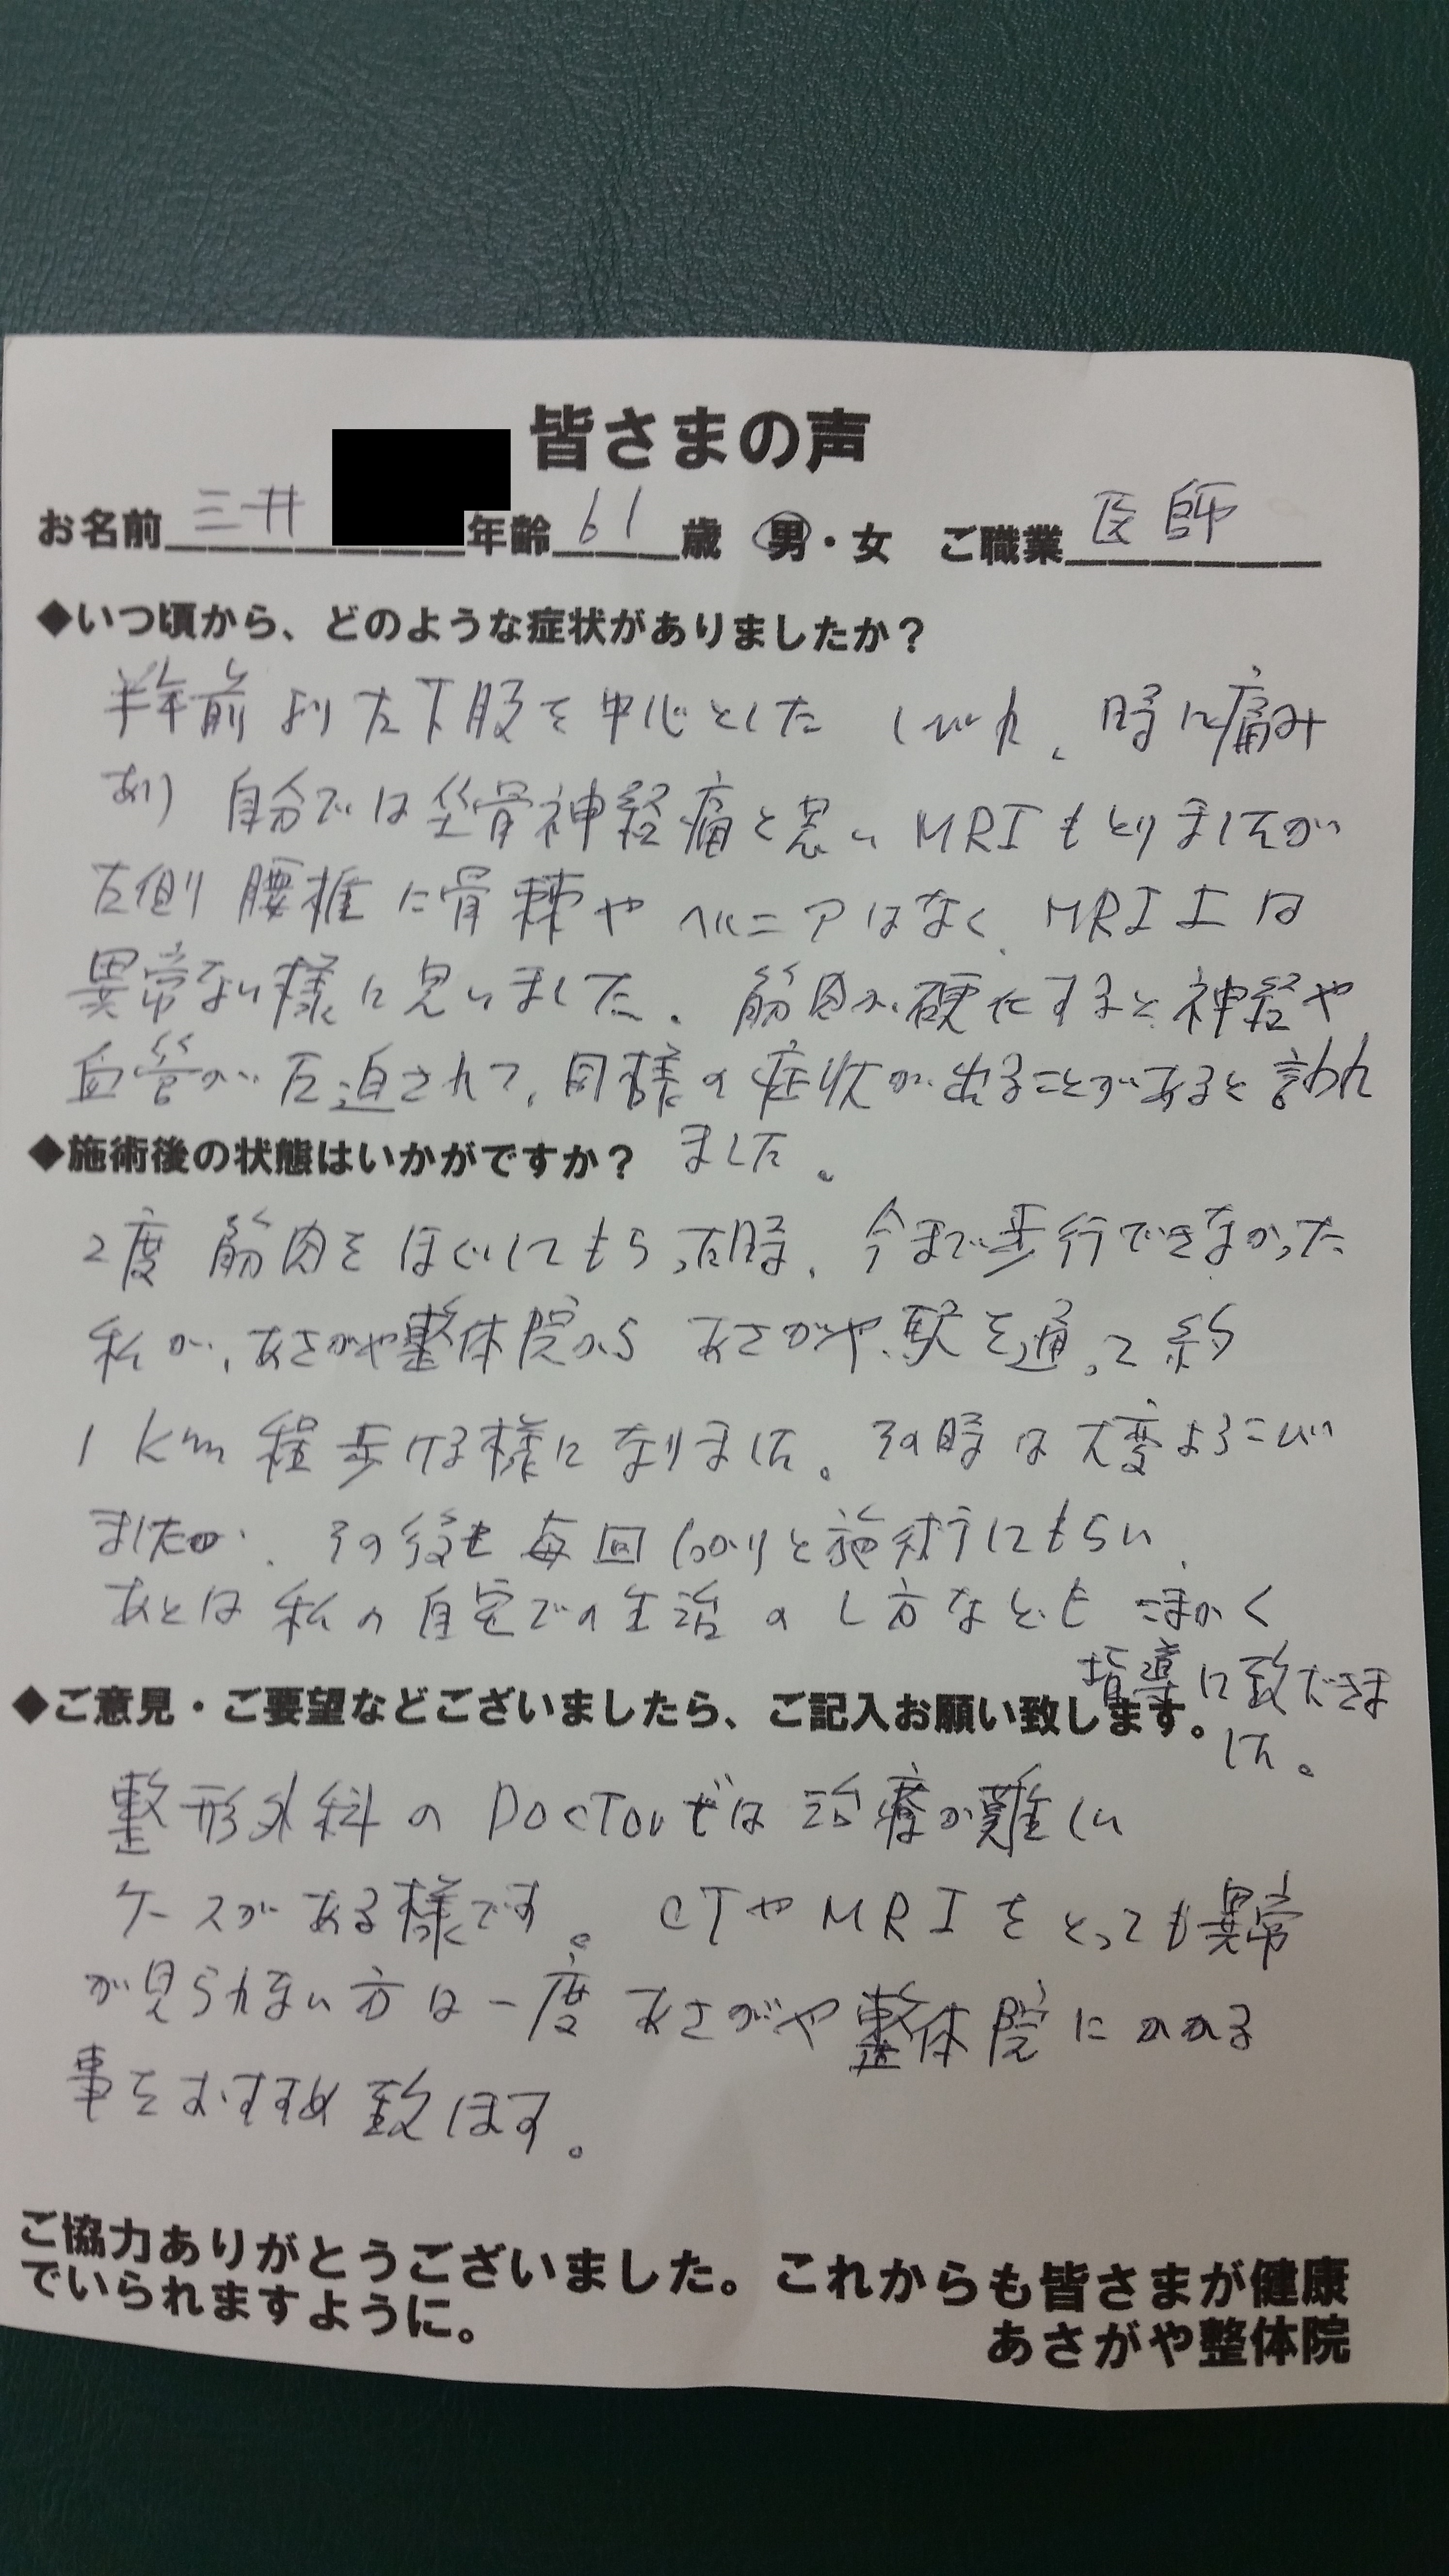 皆さまの声
お名前 三井 年齢 61 歳 男・女 ご職業 医師
◆いつ頃から、どのような症状がありましたか？
半年前より左下肢を中心とした しびれ、時に痛み
あり 自分では坐骨神経痛と思い MRIもとりましたが
左側 腰椎に骨棘や ヘルニアはなく、MRI上は
異常ない様に思いました。 筋肉が硬化すると神経や
血管が圧迫されて、同様の症状が出ることがあると言われ
ました。
◆施術後の状態はいかがですか？
2度 筋肉をほぐしてもらった時、今まで歩行できなかった
私が、あさがや整体院から あさがや駅を通って 約
1km程歩ける様になりました。その時は大変よろこび
ましたが、その後も毎回しっかりと施術してもらい、
あとは私の自宅での生活のし方なども こまかく
指導して頂きま
した。
◆ご意見・ご要望などございましたら、ご記入お願い致します。
整形外科の Doctorでは治療が難しい
ケースがある様です。CTやMRIをとっても異常
が見られない方は一度あさがや整体院にかかる
事をおすすめ致します。
ご協力ありがとうございました。これからも皆さまが健康
でいられますように。
あさがや整体院